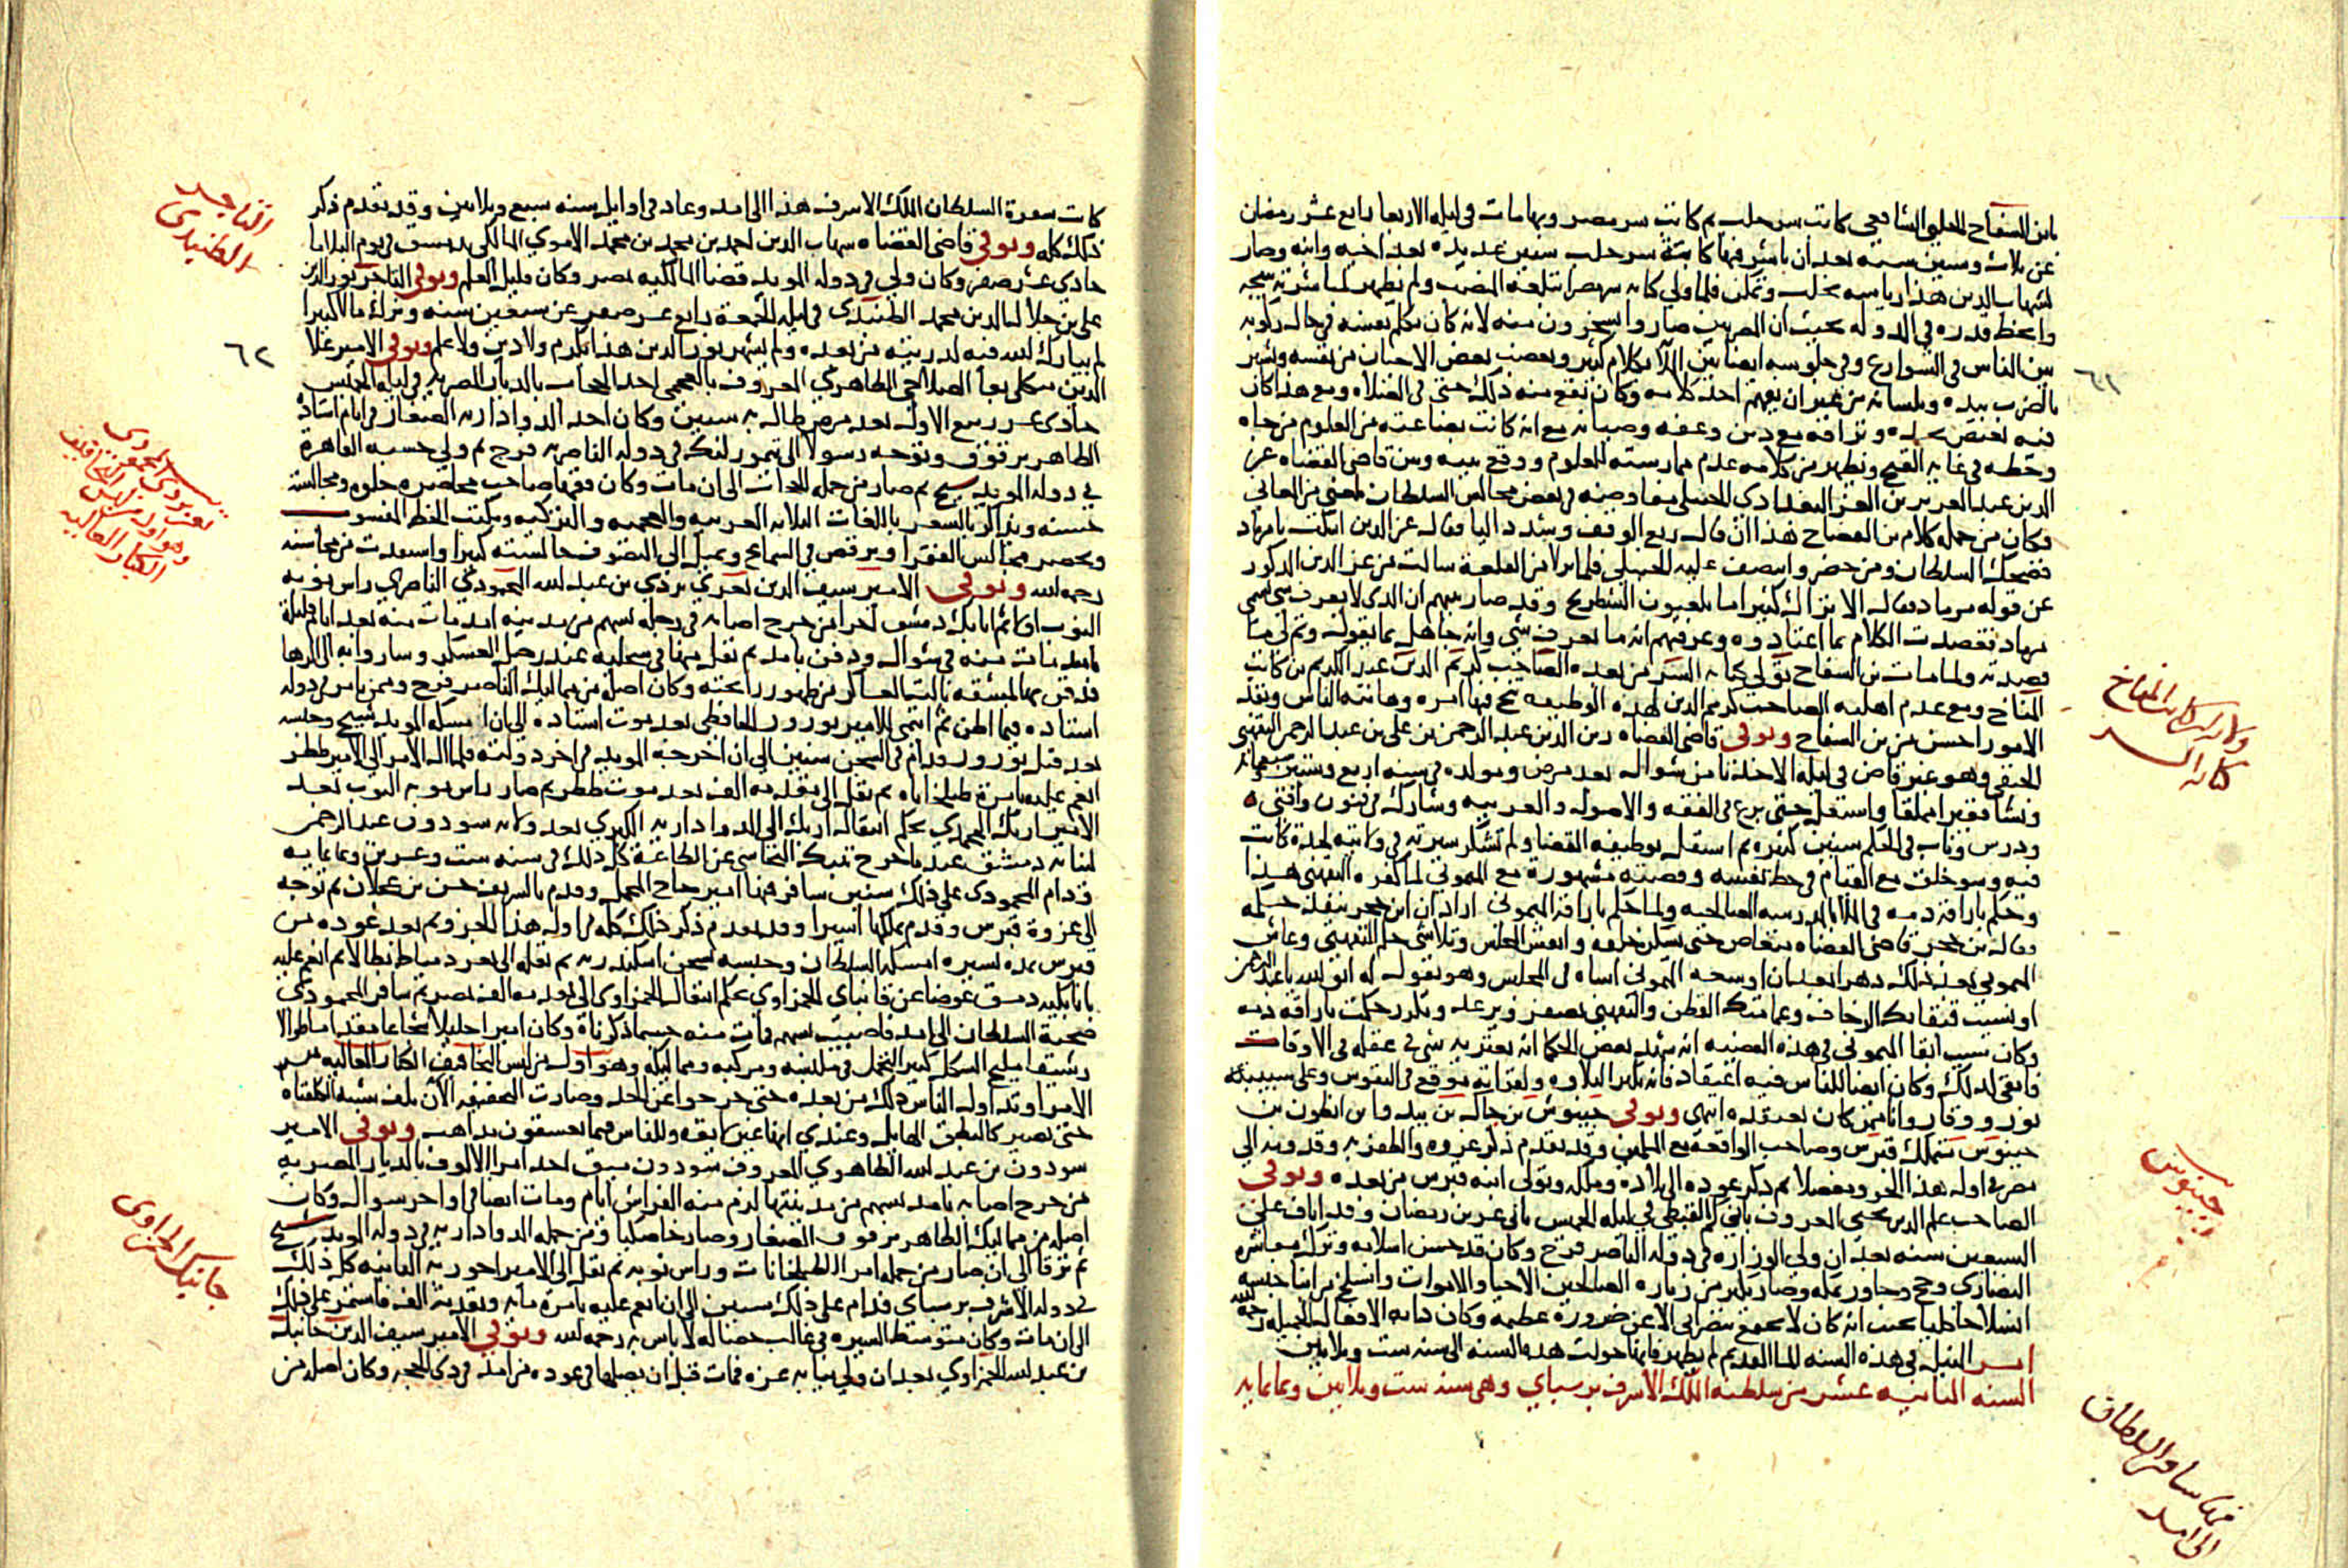 بابن السفاح الحلبي الشافعي كاتب سر حلب ثم كاتب سر مصر وبها مات في ليلة الاربعا رابع عشر رمضان
عن ثلاث وستين سنة بعد أن باشر فيها كتابة سر حلب سنين عديدة بعد اخيه وابنه وصار
لشهاب الدين هذا رياسة بحلب وتمكن فلما ولي كتابة سر مصر ابتلعه المنصب ولم يظهر لمباشرته نتيجة
وانحط قدره في الدولة بحيث ان المصريين صاروا يسخرون منه لانه كان يكلم نفسه في حال ركوبه
بين الناس في الشوارع وفي جلوسه ايضا بين الملا بكلام كثير ويغضب بعض الاحيان من نفسه ويشير
بالضرب بيده وبلسانه من غير ان يفهم احد كلامه وكان يقع منه ذلك حتى في الصلاة ومع هذا كان
وخطه في غاية القبح ويظهر من كلامه عدم ممارسته للعلوم ووقع بينه وبين قاضي القضاة عز
الدين عبد العزيز بن العز البغدادي الحنبلي مفاوضة في بعض مجالس السلطان لمعنى من المعاني
فكان من جملة كلام بن السفاح هذا ان قال ريع الوقف وشدد اليا فقال عز الدين اسكت يا مرماد
فضحك السلطان ومن حضر وانتصف عليه الحنبلي فلما نزلا من القلعة سالت من عز الدين المذكور
عن قوله مرماد فقال الاتراك كثيرا ما يلعبون الشطرنج وقد صار بينهم ان الذي لا يعرف شي يسمى
مرماد فقصدت الكلام بما اعتادوه وعرفتهم انه ما يعرف شي وانه جاهل بما يقوله وتم لي ما
قصدته ولما مات بن السفاح تولي كتابة السر من بعده الصاحب كريم الدين عبد الكريم بن كاتب
المناخ ومع عدم اهلية الصاحب كريم الدين لهذه الوظيفة نتج فيها امره وهابته الناس ونفذ
الامور احسن من بن السفاح وتوفي قاضي القضاة زين الدين عبد الرحمن بن علي بن عبد الرحمن التفهني
الحنفي وهو غير قاض في ليلة الاحد ثامن شوال بعد مرض ومولده في سنة اربع وستين وسبعمائة
ونشا فقيرا مملقا واشتغل حتى برع في الفقه والاصول والعربية وشارك في فنون وافتى
ودرس وناب في الحكم سنين كثيرة ثم استقل بوظيفة القضا ولم تشكر سيرته في ولايته لحدة كانت
فيه وسو خلق مع القيام في حظ نفسه وقصته مشهورة مع الميموني لما كفره التفهني هذا
وحكم باراقة دمه في الملا بالمدرسة الصالحية ولما حكم باراقة الميموني اراد ان ابن حجر ينفذ حكمه
فقال بن حجر قاضي القضاة منغاص حتى يسكن خلقه وانفض المجلس وتلاشى حكم التفهني وعاش
الميموني بعد ذلك دهرا بعد ان اوسعه الميموني اساه في المجلس وهو يقول له اتق الله يا عبد الرحمن
اونسيت قبقابك الزحاف وعمامتك القطن والتفهني يصفر ويرعد ويكرر حكمت باراقة دمه
فابقي لذلك وكان ايضا للناس فيه اعتقاد فانه يكثر التلاوة ولقراته موقع في النفوس وعلى شيبته
نور ووقار وانا ممن كان يعتقده انتهى وتوفي جينوس بن جاك بن بيدو بن انطون بن
جينوس متملك قبرس وصاحب الواقعة مع المسلمين وقد تقدم ذكر غزوه والظفر به وقدومه الي
مصر في اول هذا الجزو مفصلا ثم ذكر عوده الي بلاده وملكه وتولي ابنه قبرس من بعده وتوفي
الصاحب علم الدين يحيى المعروف بابي كم القبطي في ليلة الخميس ثاني عشرين رمضان وقد اناف علي
السبعين سنة بعد ان ولي الوزارة في دولة الناصر فرج وكان قد حسن اسلامه وترك معاشرة
النصارى وحج وجاور بمكة وصار يكثر من زيارة الصالحين الاحيا والاموات وانسلخ من ابنا جنسه
انسلاخا كليا بحيث انه كان لا يجتمع بنصراني الا عن ضرورة عظيمة وكان دابه الافعال الجميلة رحمه الله
امر النيل في هذه السنة الما القديم لم يظهر فانها حولت هذه السنة الى سنة ست وثلاثين
السنة الثانية عشر من سلطنة الملك الاشرف برسباي وهي سنة ست وثلاثين وثمانمايه
٦١
ولاية كاتب المناخ كتابة السر
جينوس
فيها سافر السلطان الى امد
كانت سفرة السلطان الملك الاشرف هذا الى امد وعاد في اوايل سنة سبع وثلاثين وقد تقدم ذكر
ذلك كله وتوفي قاضي القضاة شهاب الدين احمد بن محمد بن محمد الاموي المالكي بدمشق في يوم الثلاثا
حادي عشر صفر وكان ولي في دولة المويد قضا المالكية بمصر وكان قليل العلم وتوفي التاجر نور الدين
علي بن جلال الدين محمد الطنبدي في ليلة الجمعة رابع عشر صفر عن سبعين سنة وترك مالا كبيرا
لم يبارك الله فيه لذريته من بعده ولم يشهر نور الدين هذا بكرم ولا دين ولا علم وتوفي الامير علا
الدين منكلي بغا الصلاحي الظاهري المعروف بالعجمي احد الحجاب بالديار المصرية في ليلة الخميس
حادي عشر ربيع الاول بعد مرض طال به سنين وكان احد الدوادارية الصغار في ايام استاذه
الظاهر برقوق وتوجه رسولا الي تيمورلنك في دولة الناصر فرج ثم ولي حسبة القاهرة
في دولة المويد شيخ ثم صار من جملة الحجاب الى ان مات وكان فقيها صاحب محاضرة حلوه ومجالسة
حسنة ويذاكر بالشعر باللغات الثلاثة العربية والعجمية والتركية ويكتب الخط المنسوب
ويحضر مجالس الفقرا ويرقص في السماع ويميل الي التصوف جالسته كثيرا واستفدت من محاسنه
رحمه الله وتوفي الامير سيف الدين تغري بردي بن عبد الله المحمودي الناصري راس نوبة
النوب ثم اتابك دمشق آخرا من جرح اصابه في رجله بسهم من مدينة امد مات منه بعد ايام قليلة
بامد مات منه في شوال ودفن بامد ثم نقل منها في سحلية عند رحيل العسكر وساروا به الى الرها
فدفن بها لمشقة نالت العساكر من ظهور رائحته وكان اصله من مماليك الناصر فرج وممن تامر في دولة
استاذه فيما اظن ثم انتمى للامير نوروز الحافظي بعد موت استاذه الي ان امسكه المويد شيخ وحبسه
بعد قتل نوروز ودام في السجن سنين الي ان اخرجه المويد في اخر دولته فلما ال الامر الى الامير ططر
انعم عليه بامرة طبلخاناه ثم نقل الى تقدمة الف بعد موت ططر ثم صار راس نوبة النوب بعد
الامير ازبك المحمدي بحكم انتقال ازبك الي الدوادارية الكبرى بعد ولاية سودون عبد الرحمن
لنيابة دمشق عند ما خرج تنبك البجاسي عن الطاعة كل ذلك في سنة ست وعشرين وثمانماية
فدام المحمودي على ذلك سنين سافر فيها امير حاج المحمل وقدم بالشريف حسن بن عجلان ثم توجه
الى غزوة قبرس وقدم بملكها اسيرا وقد تقدم ذكر ذلك كله في اول هذا الجزو ثم بعد عوده من
قبرس بمدة يسيرة امسكه السلطان وحبسه بسجن اسكندرية ثم نقله الى ثغر دمياط بطالا ثم انعم عليه
باتابكية دمشق عوضا عن قانباي الحمزاوي بحكم انتقال الحمزاوي الى تقدمة الف بمصر ثم سافر المحمودي
صحبة السلطان الى امد فاصيب بسهم مات منه حسبما ذكرناه وكان اميرا جليلا شجاعا مقداما طوالا
رشيقا مليح الشكل كثير التجمل في ملبسه ومركبه ومماليكه وهو اول من لبس التخافيف الكبار العالية من
الامرا وتداوله الناس ذلك من بعده حتى خرجوا عن الحد وصارت التخفيفة الآن يلف شبه الكلفتاه
حتى تصير كالطبق الهايل وعندي انها غير لايقة وللناس فيما يعشقون مذاهب وتوفي الامير
سودون بن عبد الله الظاهري المعروف سودون ميق احد امرا الالوف بالديار المصرية
من جرح اصابه بامد بسهم من مدينتها لزم منه الفراش ايام ومات ايضا في اواخر شوال وكان
اصله من مماليك الظاهر برقوق الصغار وصار خاصكيا ومن جملة الدوادارية في دولة المويد شيخ
ثم ترقا الي ان صار من جملة امرا الطبلخانات وراس نوبة ثم نقل الى الامير اخورية الثانية كل ذلك
في دولة الاشرف برسباي فدام على ذلك سنين الى ان انعم عليه بامرة مايه وتقدمة الف فاستمر على ذلك
الى ان مات وكان متوسط السيرة في غالب خصاله لا باس به رحمه الله وتوفي الامير سيف الدين جانبك
بن عبد الله الحمزاوي بعد ان ولي نيابة غزة فمات قبل ان يصلها في عوده من امد في ذي الحجة وكان اصله من
التاجر الطنبدي
٦٢
تغري بردي المحمودي وهو اول من لبس التخافيف الكبار العالية
جانبك الحمزاوي